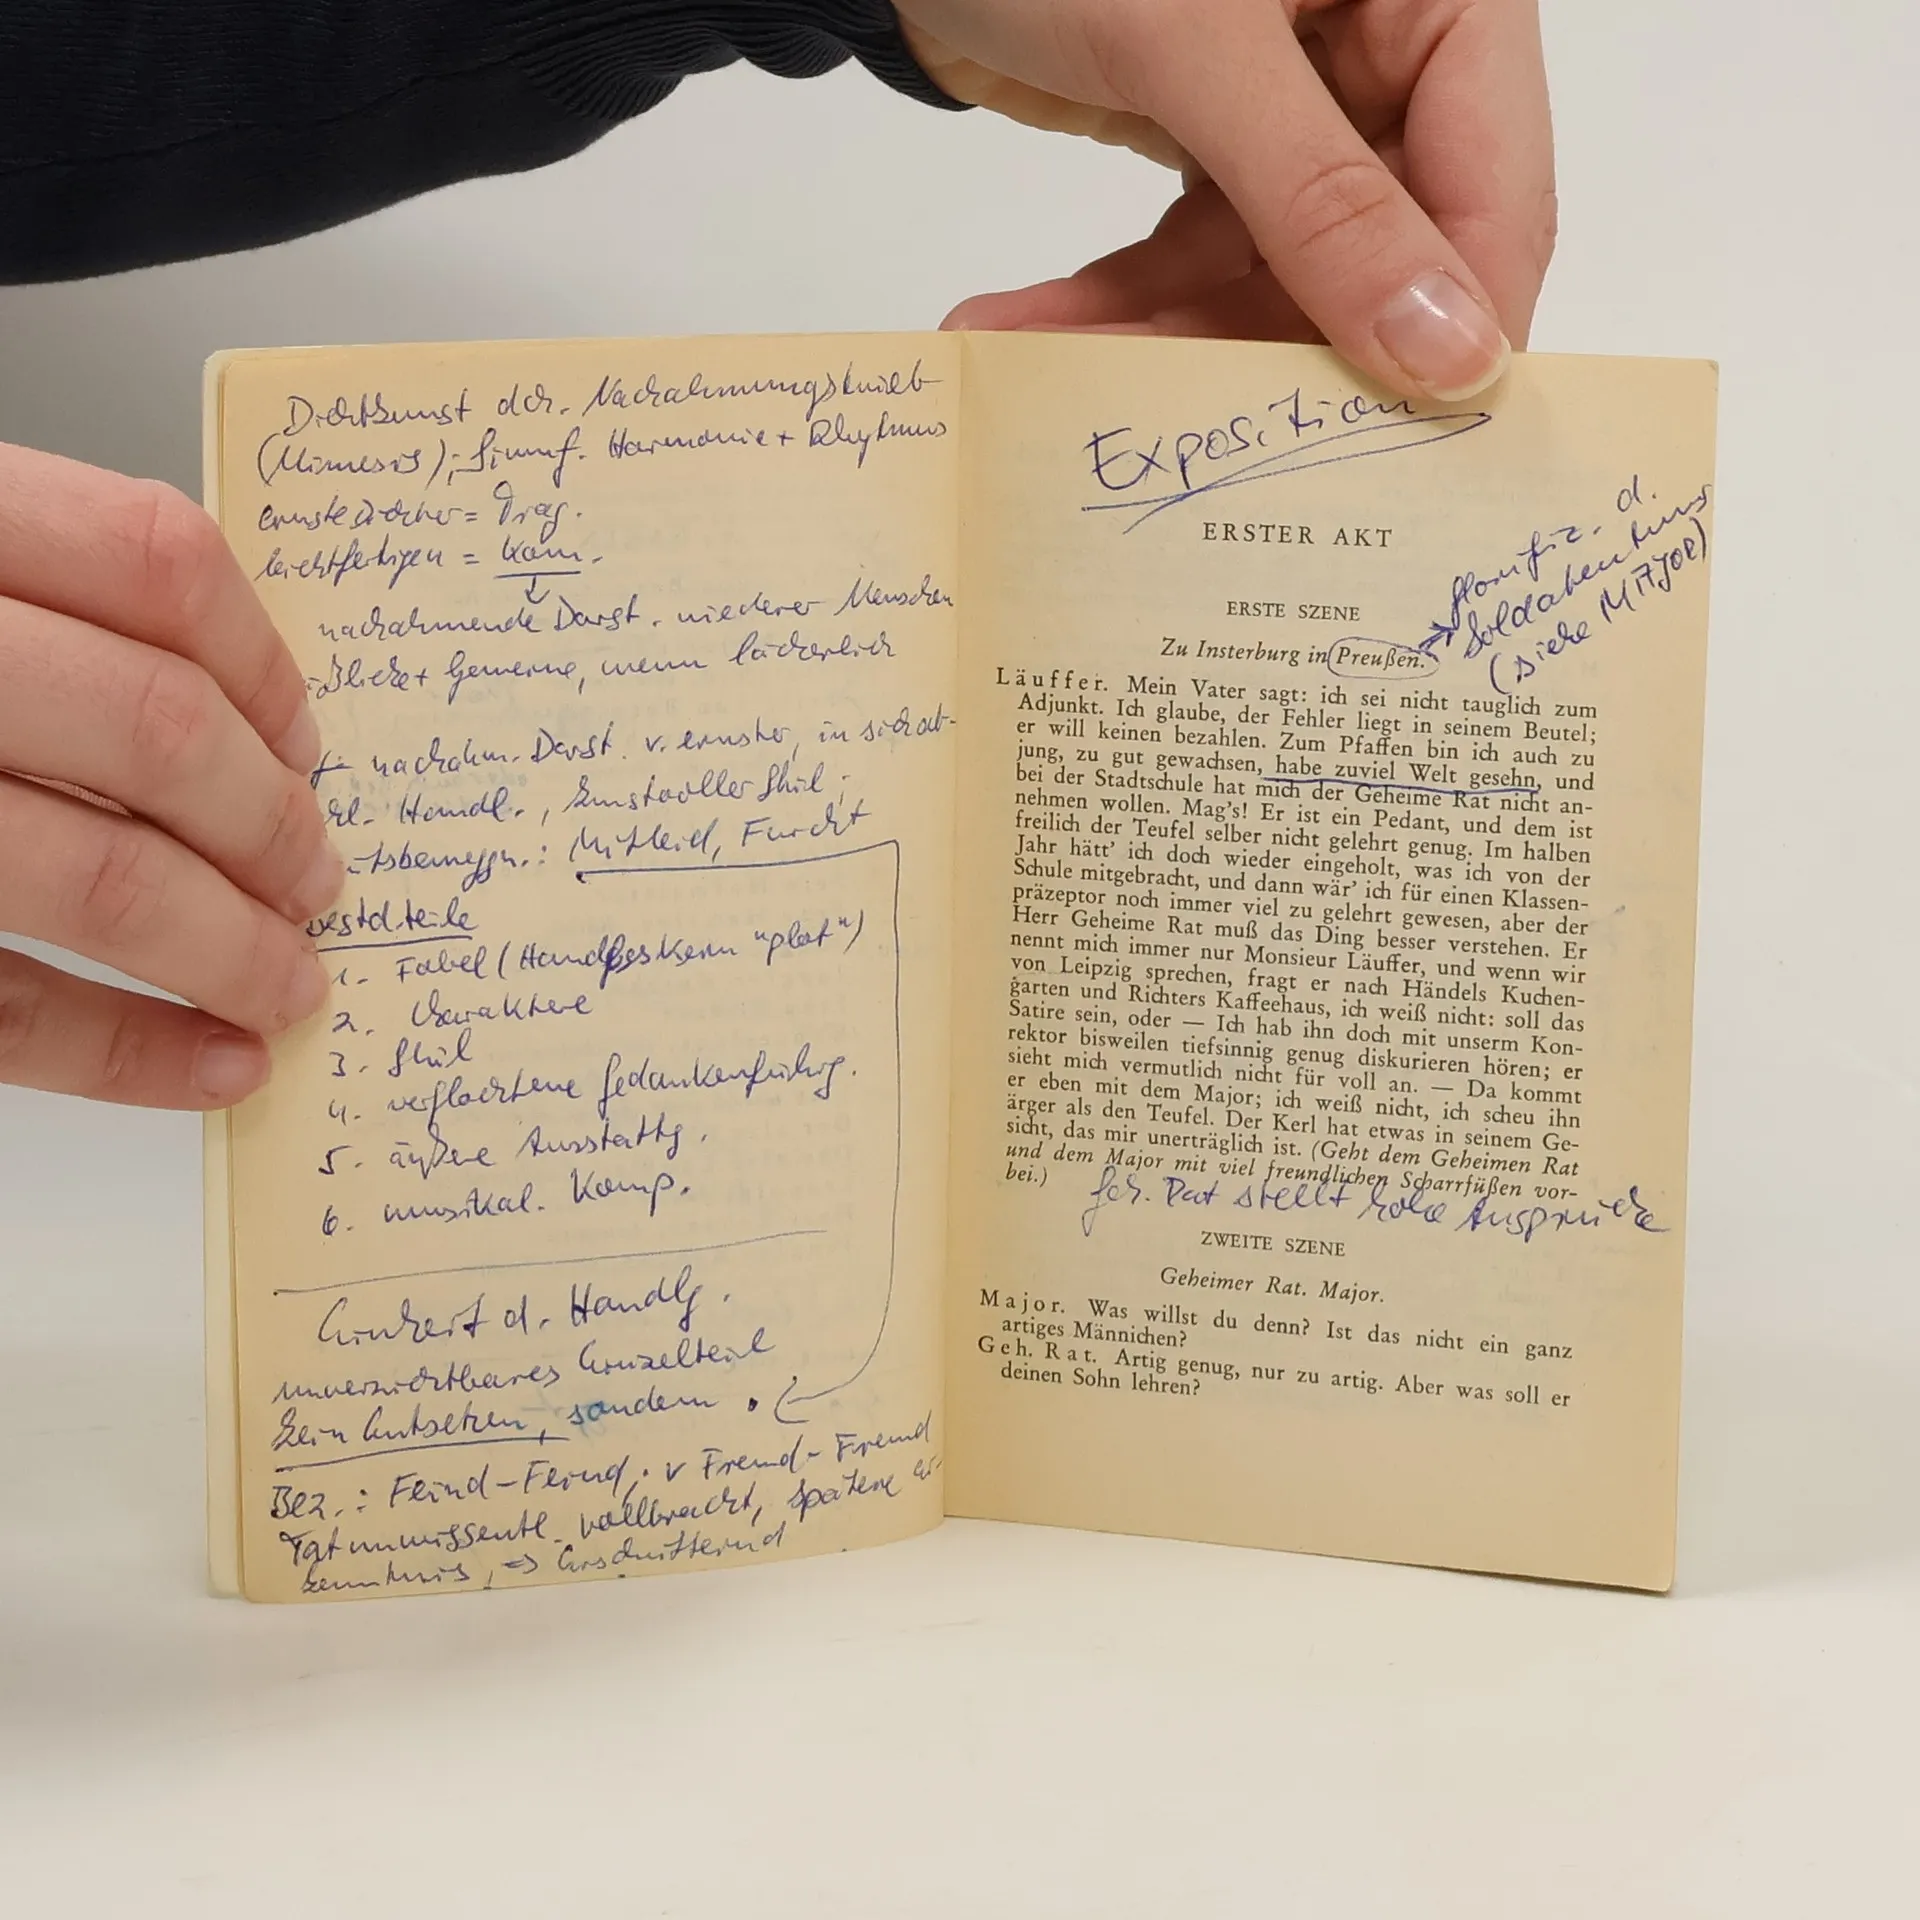 Dichtkunst dch. Nachahmungstrieb
(Mimesis); Harmonie + Rhythmus
ernste Dichter = Trag.
leichtfertigen = Kom.
nachahmende Darst. niederer Menschen
+ Gemeine, wenn lächerlich
nachahm. Darst. v. ernster, in sich ab-
Handl., kunstvoller Stil;
Mitleid, Furcht
Bestd.teile
1. Fabel (Handlgskern "plot")
2. Charaktere
3. Stil
4. verflochtene Gedankenführg.
5. äußere Ausstattg.
6. musikal. Komp.
Einheit d. Handlg.
unverzichtbares Einzelteil
kein Entsetzen, sondern
Bez.: Feind-Feind, v Fremd-Fremd
Tat unwissentl. vollbracht, spätere Er-
kenntnis, => Erschütternd
Exposition
ERSTER AKT
d.
Soldatentums
(siehe MAJOR)
ERSTE SZENE
Zu Insterburg in Preußen.
Läuffer. Mein Vater sagt: ich sei nicht tauglich zum
Adjunkt. Ich glaube, der Fehler liegt in seinem Beutel;
er will keinen bezahlen. Zum Pfaffen bin ich auch zu
jung, zu gut gewachsen, habe zuviel Welt gesehn, und
bei der Stadtschule hat mich der Geheime Rat nicht an-
nehmen wollen. Mag's! Er ist ein Pedant, und dem ist
freilich der Teufel selber nicht gelehrt genug. Im halben
Jahr hätt' ich doch wieder eingeholt, was ich von der
Schule mitgebracht, und dann wär' ich für einen Klassen-
präzeptor noch immer viel zu gelehrt gewesen, aber der
Herr Geheime Rat muß das Ding besser verstehen. Er
nennt mich immer nur Monsieur Läuffer, und wenn wir
von Leipzig sprechen, fragt er nach Händels Kuchen-
garten und Richters Kaffeehaus, ich weiß nicht: soll das
Satire sein, oder — Ich hab ihn doch mit unserm Kon-
rektor bisweilen tiefsinnig genug diskurieren hören; er
sieht mich vermutlich nicht für voll an. — Da kommt
er eben mit dem Major; ich weiß nicht, ich scheu ihn
ärger als den Teufel. Der Kerl hat etwas in seinem Ge-
sicht, das mir unerträglich ist. (Geht dem Geheimen Rat
und dem Major mit viel freundlichen Scharrfüßen vor-
bei.)
Geh. Rat stellt hohe Ansprüche
ZWEITE SZENE
Geheimer Rat. Major.
Major. Was willst du denn? Ist das nicht ein ganz
artiges Männichen?
Geh. Rat. Artig genug, nur zu artig. Aber was soll er
deinen Sohn lehren?